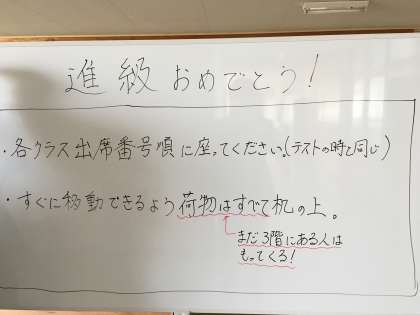 進級おめでとう!
・各クラス出席番号順に座ってください。(テストの時と同じ)
・すぐに移動できるよう荷物はすべて机の上。
まだ3階にある人は
もってくる!